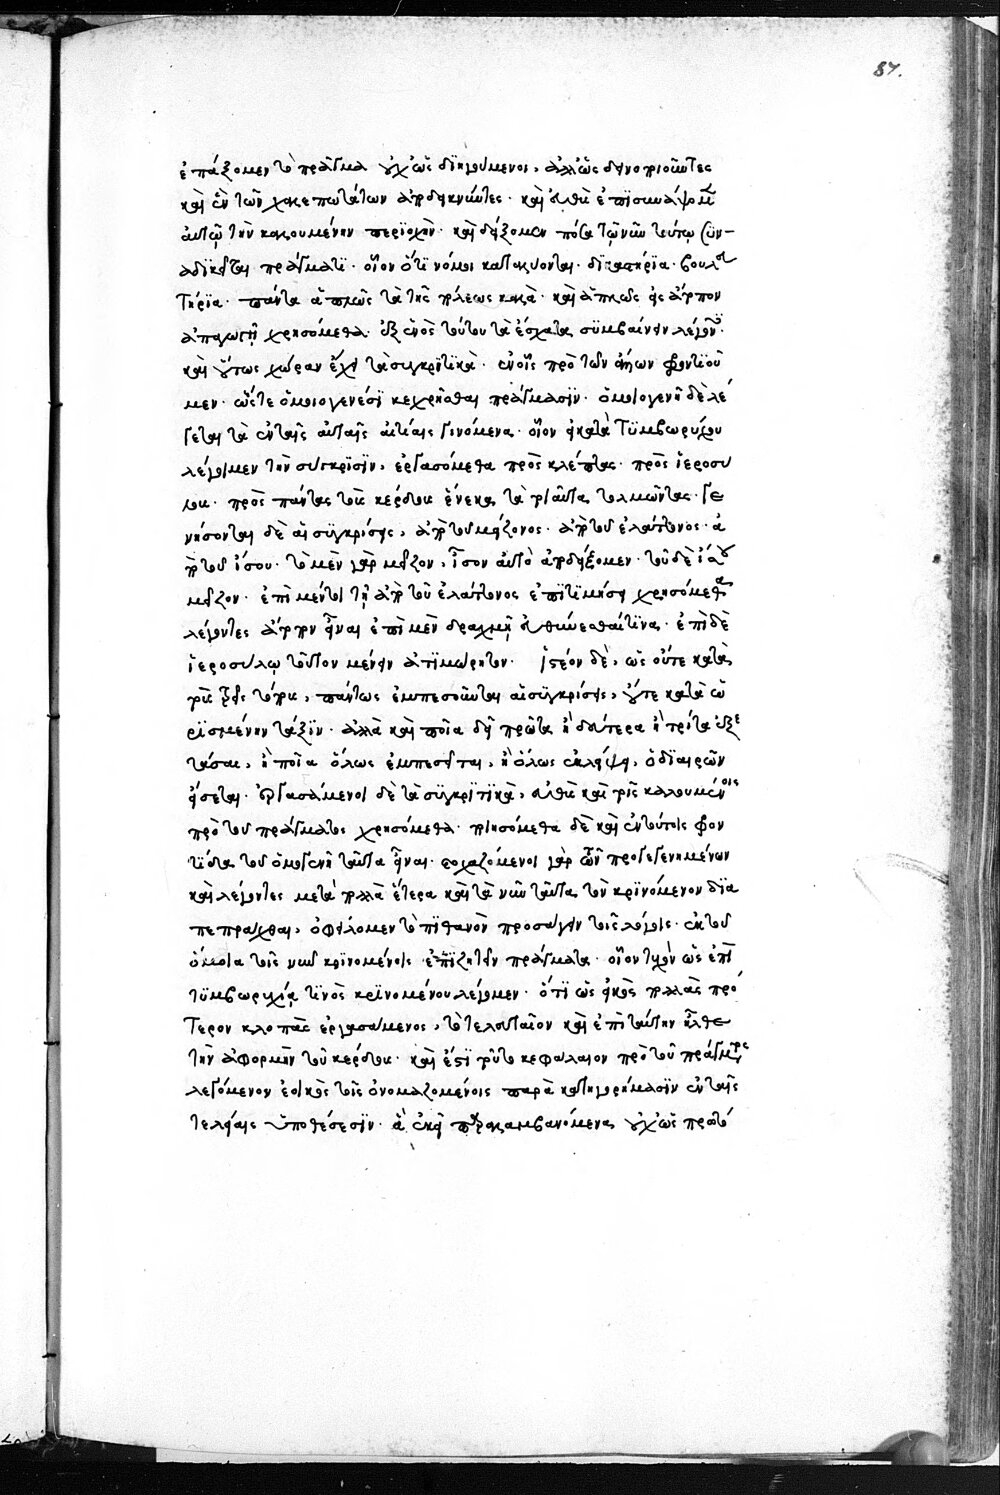 87.
ἐπάξομεν τὸ πρᾶγμα οὐχ ὡς διηγούμενοι, ἀλλ' ὡς δεινοποιοῦντες
καὶ ἐν τῶν χαλεπωτάτων ἀποδεικνύντες· καὶ
αὐτῷ τὴν κακουμένην περιοχὴν· καὶ δείξομεν πόσα τῷ νῦν τούτῳ συν-
αδικεῖται πράγματι· οἷον ὅτι νόμοι καταλύονται· δικαστήρια· βουλευ
τήρια· πάντα ἁπλῶς τὰ τῆς πόλεως κακὰ· καὶ ἁπλῶς εἰς ἄτοπον
ἀπαγωγῇ χρησόμεθα· ἐξ ἑνὸς τούτου τὰ ἔσχατα συμβαίνειν λέγοντες·
καὶ ὅπως χώραν ἔχῃ τὰ συγκριτικὰ· ἐν οἷς πρὸ τῶν ἄλλων φροντιοῦ
μεν· ὥστε ὁμοιογενέσι κεχρῆσθαι πράγμασιν· ὁμοιογενῆ δὲ λέ
γεται τὰ ἐν ταῖς αὐταῖς αἰτίαις γινόμενα· οἷον εἰ κατὰ τυμβωρύχου
λέγοιμεν τὴν σύγκρισιν, ἐργασόμεθα πρὸς κλέπτας· πρὸς ἱεροσύ
λους· πρὸς πάντας τοὺς κέρδους ἕνεκα τὰ τοιαῦτα τολμῶντας· γε
νήσονται δὲ αἱ συγκρίσεις, ἀπὸ τοῦ μείζονος· ἀπὸ τοῦ ἐλάττονος· ἀ
πὸ τοῦ ἴσου· τὸ μὲν γὰρ μεῖζον, ἴσον αὐτὸ ἀποδείξομεν· τοῦ δὲ ἴσου
μεῖζον· ἐπὶ μέντοι τῇ ἀπὸ τοῦ ἐλάττονος ἐπιτιμήσει χρησόμεθα
λέγοντες ἄτοπον εἶναι ἐπὶ μὲν δραχμῇ εὐθύνεσθαί τινα· ἐπὶ δὲ
ἱεροσύλῳ τοῦτον μένειν ἀτιμώρητον· ἰστέον δὲ, ὡς οὔτε κατὰ
τοὺς ἑξῆς τόπους, πάντως ἐμπεσοῦνται αἱ συγκρίσεις, οὔτε κατὰ ὡ
ρισμένην τάξιν· ἀλλὰ καὶ ποῖα δεῖ πρῶτα ἢ δεύτερα ἢ τρίτα ἐξε
τάσαι, ἢ ποῖα ὅλως ἐμπεσεῖται, ἢ ὅλως ἐκλείψει, ὁ διαιρῶν
εἴσεται· ἐργασάμενοι δὲ τὰ συγκριτικὰ, εὐθὺς καὶ τοῖς καλουμένοις
πρὸ τοῦ πράγματος χρησόμεθα· ποιησόμεθα δὲ καὶ ἐν τούτοις φρον
τίδα τοῦ ὁμογενῆ ταῦτα εἶναι· στοχαζόμενοι γὰρ τῶν προγεγενημένων
καὶ λέγοντες μετὰ πολλὰ ἕτερα καὶ τὰ νῦν ταῦτα τὸν κρινόμενον δια
πεπρᾶχθαι, ὀφείλομεν τὸ πιθανὸν προσάγειν τοῖς λόγοις· ἐκ τοῦ
ὅμοια τοῖς νῦν κρινομένοις ἐπιζητεῖν πράγματα· οἷον τυχὸν ὡς ἐπὶ
τυμβωρυχίᾳ τινὸς κρινομένου λέγομεν· ὅτι ὡς εἰκὸς πολλὰς πρό
τερον κλοπὰς ἐργασάμενος, τὸ τελευταῖον καὶ ἐπὶ ταύτην ἦλθε
τὴν ἀφορμὴν τοῦ κέρδους· καὶ ἔστι τοῦτο κεφάλαιον πρὸ τοῦ πράγματος
λεγόμενον ἐοικὸς τοῖς ὀνομαζομένοις παρὰ κατηγορήμασιν ἐν ταῖς
τελείαις ὑποθέσεσιν· ἃ ἐκεῖ παραλαμβανόμενα οὐχ ὡς πρωτό